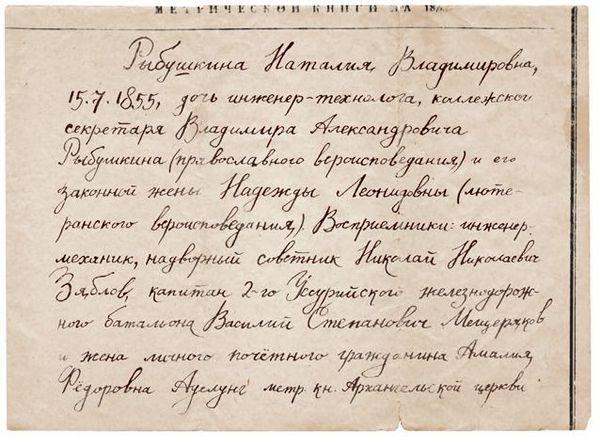 МЕТРИЧЕСКОЙ КНИГИ ЗА 18
Рыбушкина Наталия, Владимировна,
15.7.1855, дочь инженер-технолога, коллежского
секретаря Владимира Александровича
Рыбушкина (православного вероисповедания,) и его
законной жены Надежды Леонидовны (люте-
ранского вероисповедания,). Восприемники: инженер-
механик, надворный советник Николай Николаевич
Зяблов, капитан 2-го Уссурийского железнодорож-
ного батальона Василий Степанович Мещеряков
и жена личного почётного гражданина Амалия
Фёдоровна Ауслунг метр. кн. Архангельской церкви